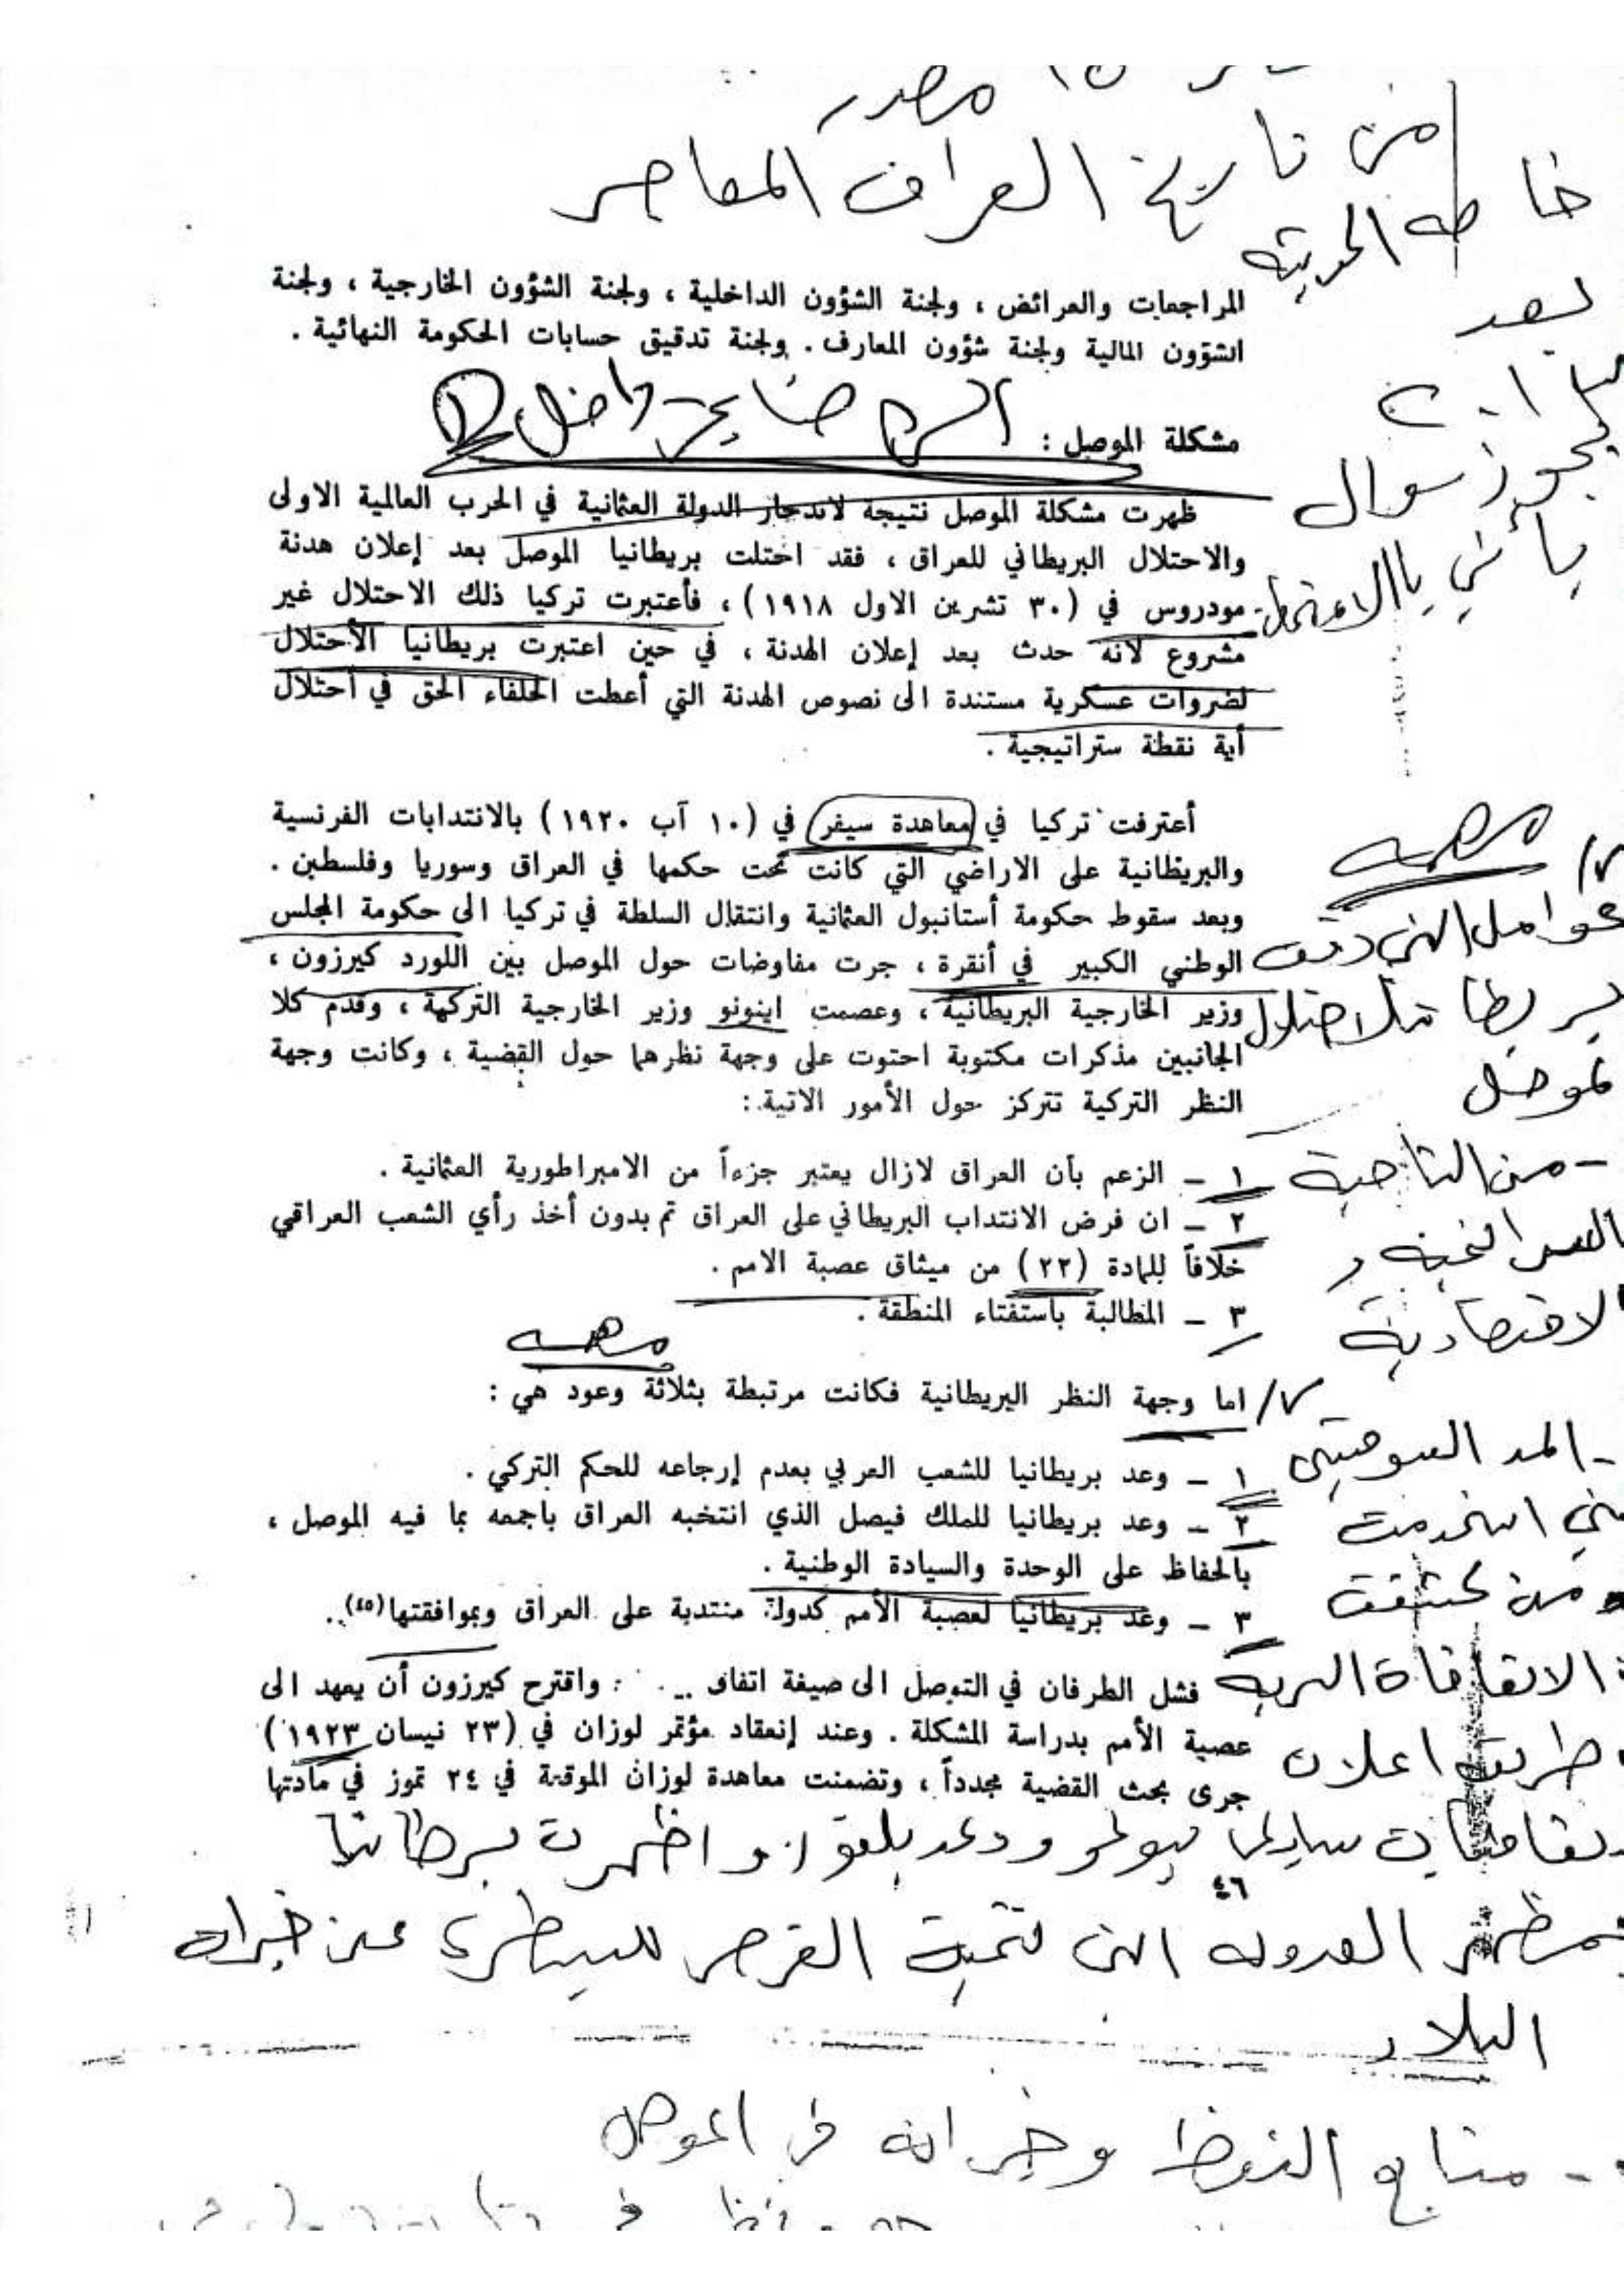 مصدر
من تاريخ العراق المعاصر
المراجعات والعرائض ، ولجنة الشؤون الداخلية ، ولجنة الشؤون الخارجية ، ولجنة
الشؤون المالية ولجنة شؤون المعارف . ولجنة تدقيق حسابات الحكومة النهائية .
مشكلة الموصل :
ظهرت مشكلة الموصل نتيجة لاندحار الدولة العثمانية في الحرب العالمية الاولى
والاحتلال البريطاني للعراق ، فقد احتلت بريطانيا الموصل بعد إعلان هدنة
مودروس في (٣٠ تشرين الاول ١٩١٨) ، فأعتبرت تركيا ذلك الاحتلال غير
مشروع لانه حدث بعد إعلان الهدنة ، في حين اعتبرت بريطانيا الأحتلال
لضروات عسكرية مستندة الى نصوص الهدنة التي أعطت الحلفاء الحق في أحتلال
أية نقطة ستراتيجية .
أعترفت تركيا في معاهدة سيفر في (١٠ آب ١٩٢٠) بالانتدابات الفرنسية
والبريطانية على الاراضي التي كانت تحت حكمها في العراق وسوريا وفلسطين .
وبعد سقوط حكومة أستانبول العثمانية وانتقال السلطة في تركيا الى حكومة المجلس
الوطني الكبير في أنقرة ، جرت مفاوضات حول الموصل بين اللورد كيرزون ،
وزير الخارجية البريطانية ، وعصمت اينونو وزير الخارجية التركية ، وقدم كلا
الجانبين مذكرات مكتوبة احتوت على وجهة نظرهما حول القضية ، وكانت وجهة
النظر التركية تتركز حول الأمور الاتية :
١ – الزعم بأن العراق لازال يعتبر جزءاً من الامبراطورية العثمانية .
٢ – ان فرض الانتداب البريطاني على العراق تم بدون أخذ رأي الشعب العراقي
خلافاً للمادة (٢٢) من ميثاق عصبة الامم .
٣ – المطالبة بأستفتاء المنطقة .
مهمه
اما وجهة النظر البريطانية فكانت مرتبطة بثلاثة وعود هي :
١ – وعد بريطانيا للشعب العربي بعدم إرجاعه للحكم التركي .
٢ – وعد بريطانيا للملك فيصل الذي انتخبه العراق باجمعه بما فيه الموصل ،
بالحفاظ على الوحدة والسيادة الوطنية .
٣ – وعد بريطانيا لعصبة الأمم كدولة منتدبة على العراق وبموافقتها(٤٥) .
فشل الطرفان في التوصل الى صيغة اتفاق . واقترح كيرزون أن يعهد الى
عصبة الأمم بدراسة المشكلة . وعند إنعقاد مؤتمر لوزان في (٢٣ نيسان ١٩٢٣)
جرى بحث القضية مجدداً ، وتضمنت معاهدة لوزان الموقعة في ٢٤ تموز في مادتها
٤٦
بعد
يجوز سوال
مهمه
عوامل التي دفعت
لموصل
- من الناحية
الاقتصادية
- المد السوفيتي
الاتفاقاة السرية
طريق اعلان
البلاد
- منابع النفط وخيراته في الموصل